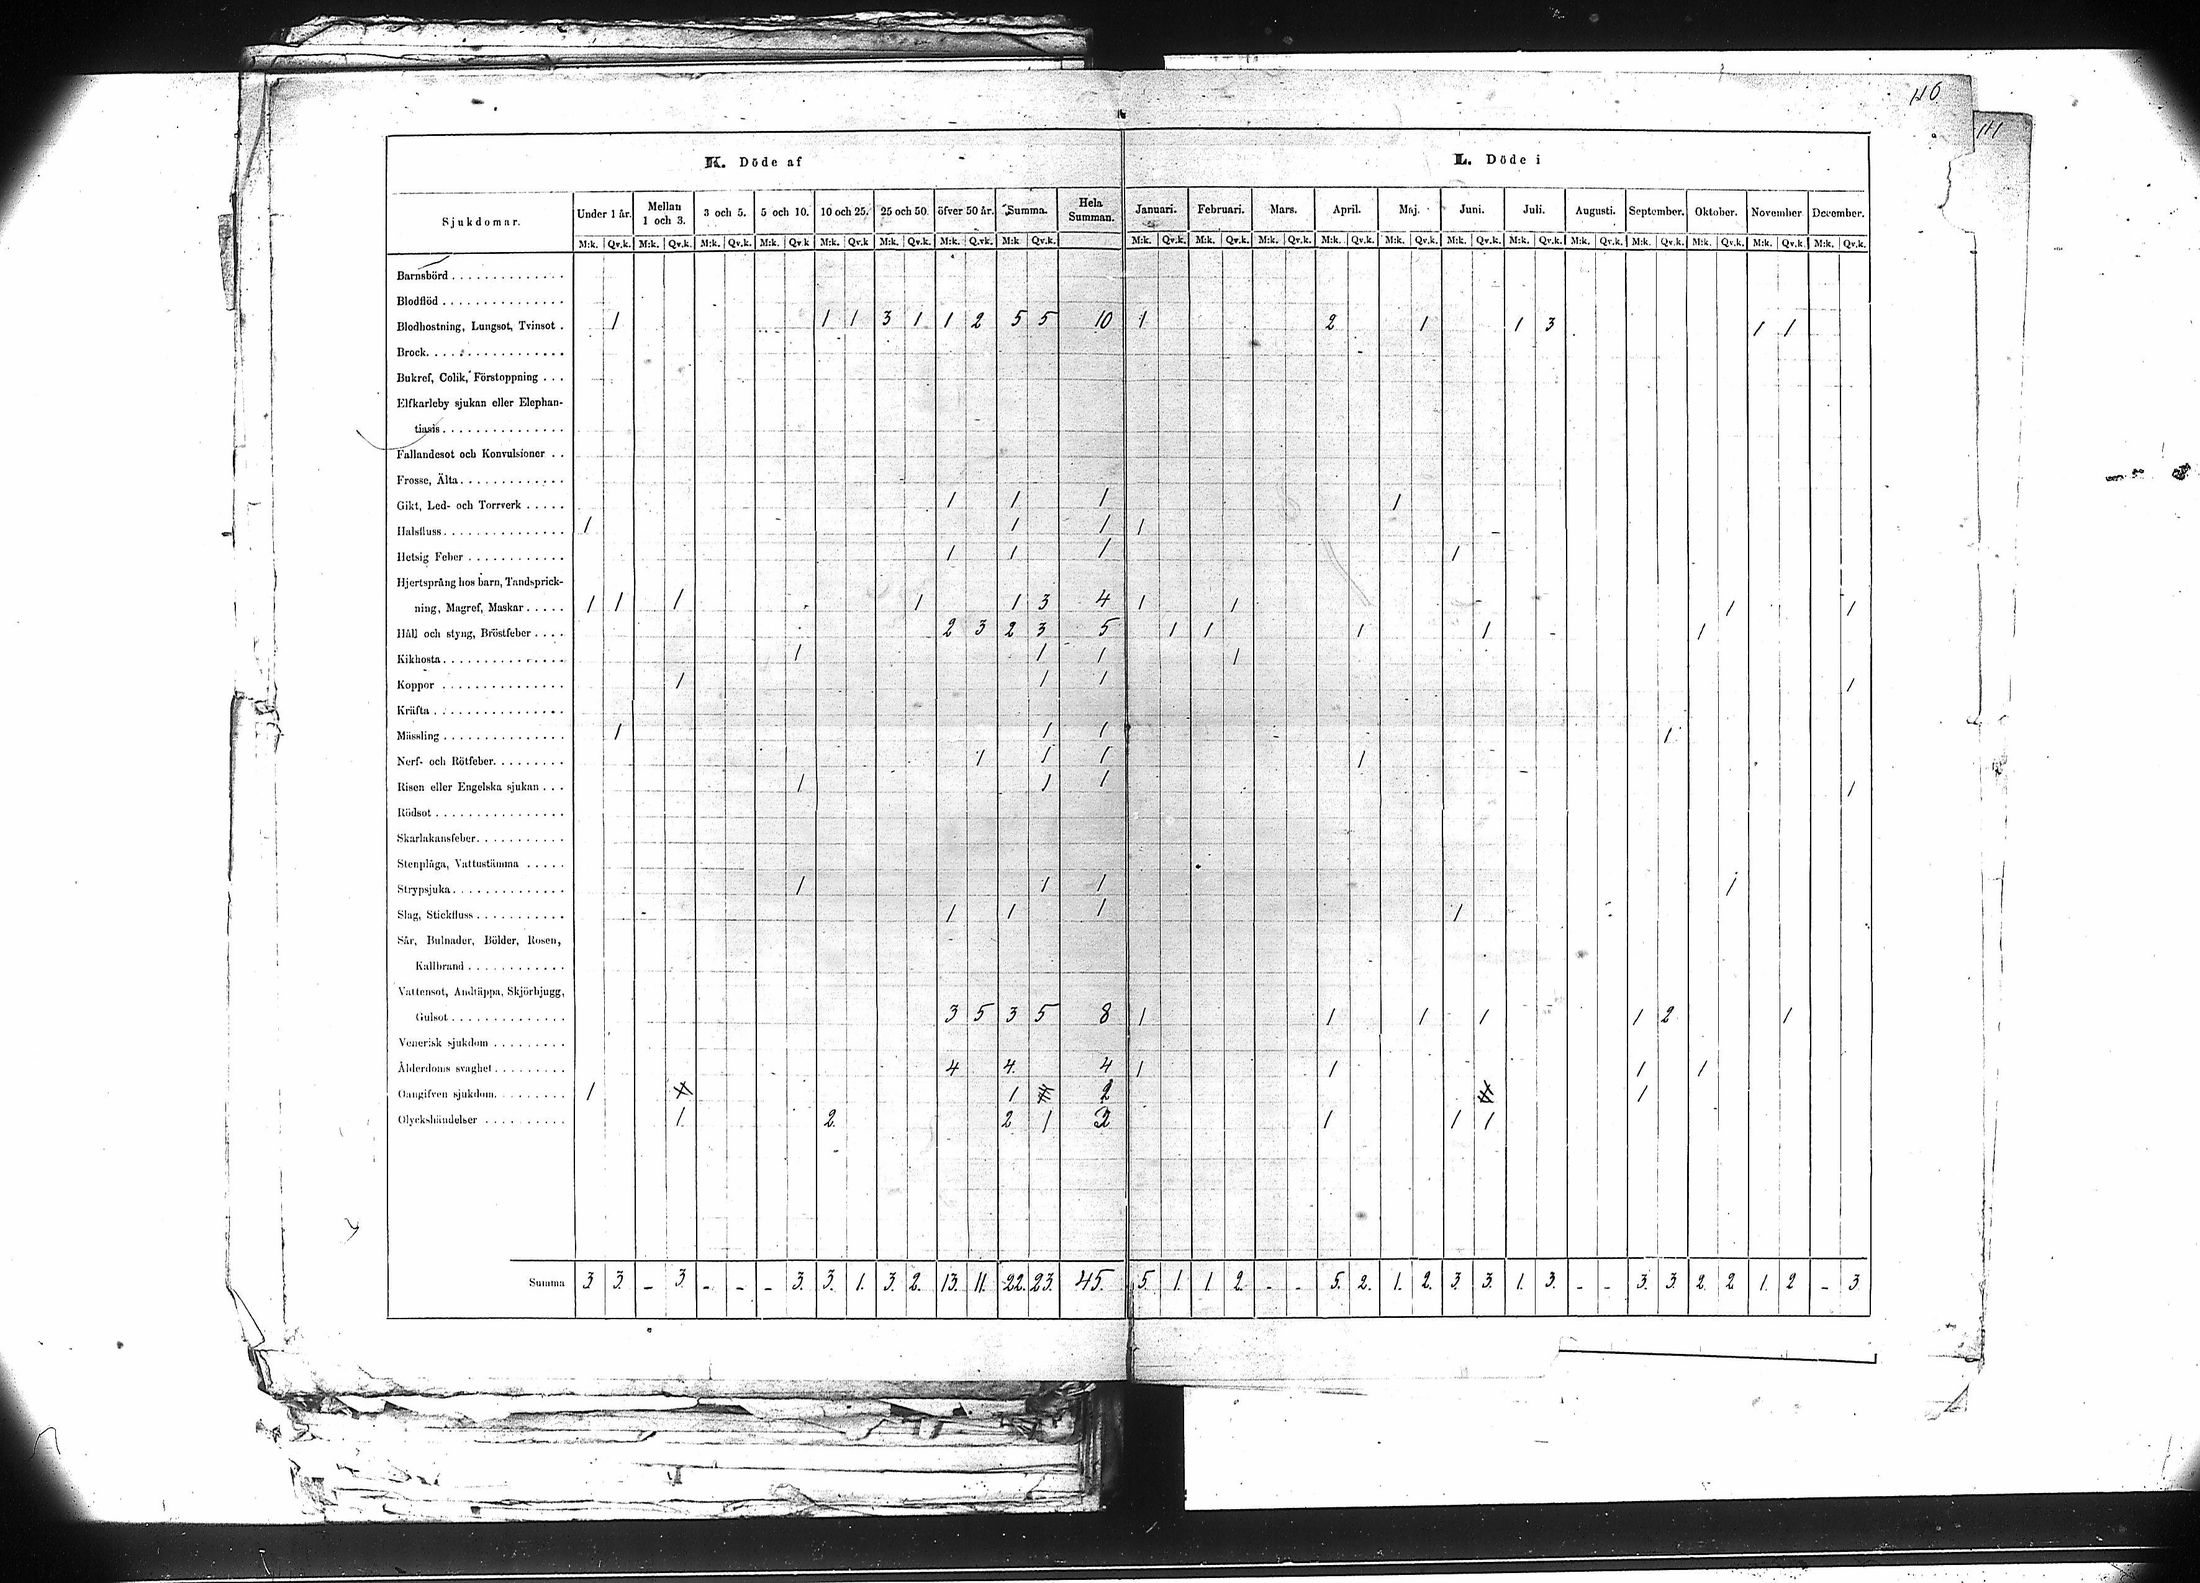 116
111
K. Döde af
L. Döde i
Sjukdomar. Under 1 år. Mellan 1 och 3. 3 och 5. 5 och 10. 10 och 25. 25 och 50. öfver 50 år. Summa. Hela Summan. Januari. Februari. Mars. April. Maj. Juni. Juli. Augusti. September. Oktober. November. December.
M:k. Qv.k. M:k. Qv.k. M:k. Qv.k. M:k. Qv.k M:k. Qv.k M:k. Qv.k. M:k. Q.vk. M:k Qv.k. M:k. Qv.k. M:k. Qv.k. M:k. Qv.k. M:k. Qv.k. M:k. Qv.k. M:k. Qv.k. M:k. Qv.k. M:k. Qv.k. M:k. Qv.k. M:k. Qv.k. M:k. Qv.k. M:k. Qv.k.
Barnsbörd
Blodflöd
Blodhostning, Lungsot, Tvinsot . 1 1 1 3 1 1 2 5 5 10 1 2 1 1 3 1 1
Brock
Bukref, Colik, Förstoppning
Elfkarleby sjukan eller Elephan-
tiasis
Fallandesot och Konvulsioner
Frosse, Älta
Gikt, Led- och Torrverk 1 1 1 1
Halsfluss 1 1 1 1
Hetsig Feber 1 1 1 1
Hjertsprång hos barn, Tandsprick-
ning, Magref, Maskar 1 1 1 1 1 3 4 1 1 1 1
Håll och styng, Bröstfeber 2 3 2 3 5 1 1 1 1 1
Kikhosta 1 1 1 1
Koppor 1 1 1 1
Kräfta
Mässling 1 1 1 1
Nerf- och Rötfeber 1 1 1 1
Risen eller Engelska sjukan 1 1 1 1
Rödsot
Skarlakansfeber
Stenplåga, Vattustämma
Strypsjuka 1 1 1 1
Slag, Stickfluss 1 1 1 1
Sår, Bulnader, Bölder, Rosen,
Kallbrand
Vattensot, Andtäppa, Skjörbjugg,
Gulsot 3 5 3 5 8 1 1 1 1 1 2 1
Venerisk sjukdom
Ålderdoms svaghet 4 4. 4 1 1 1 1
Oangifven sjukdom 1 1 2 1
Olyckshändelser 1 2. 2 1 3 1 1 1
Summa 3 3. - 3. - - - 3. 3. 1. 3. 2. 13. 11. 22. 23. 45. 5. 1. 1 2. - - 5. 2. 1. 2. 3. 3. 1. 3. - - 3. 3. 2. 2 1. 2 - 3